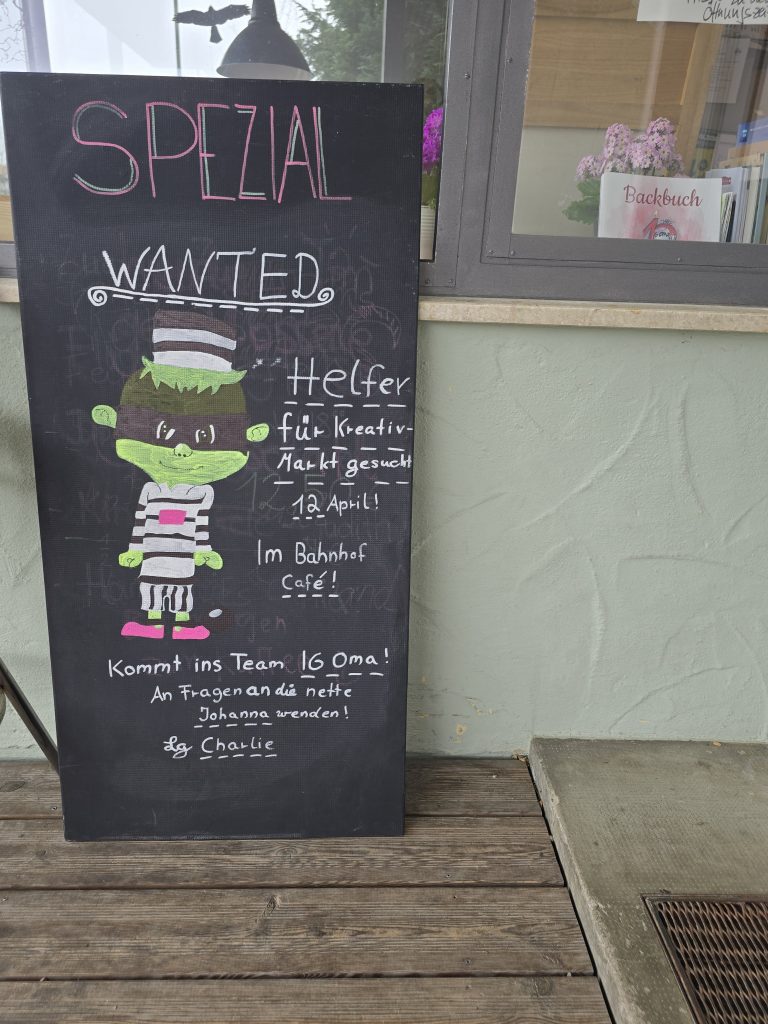 Öffnungsze
SPEZIAL
Backbuch
WANTED
Helfer
für Kreativ-
Markt gesucht
12 April!
Im Bahnhof
Café!
Kommt ins Team IG Oma!
An Fragen an die nette
Johanna wenden!
Lg Charlie